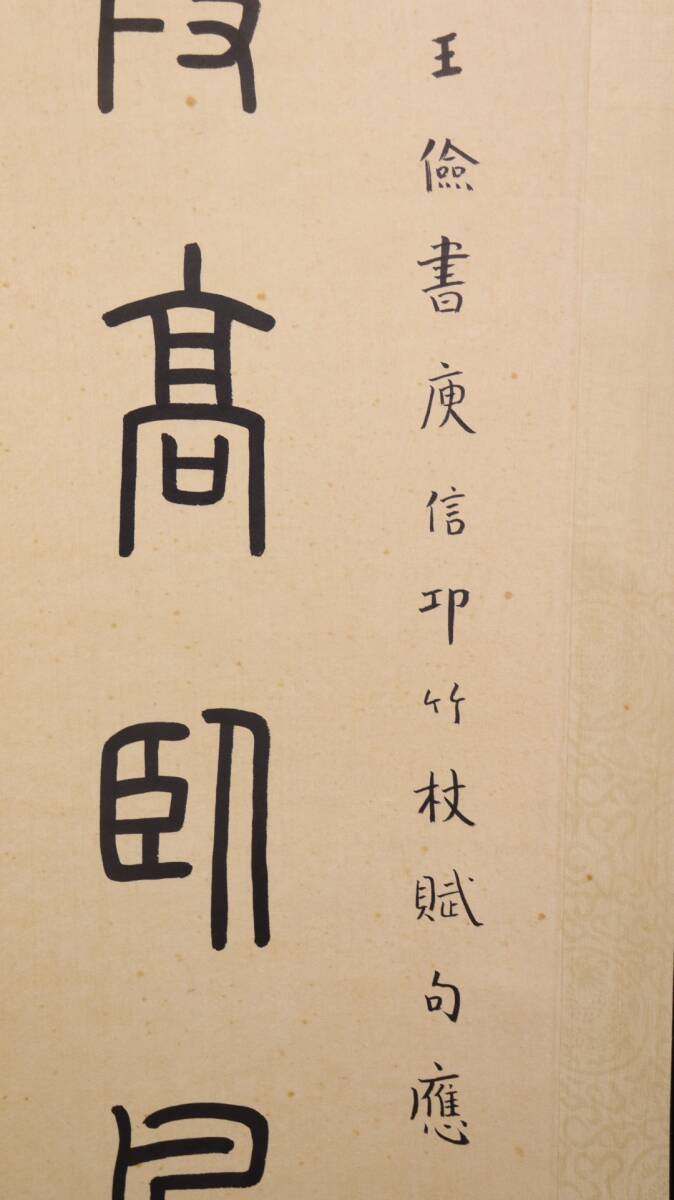 王儉書庾信邛竹杖賦句應
高臥